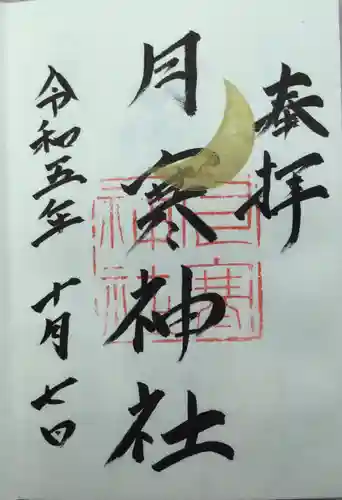 奉拝
月寒神社
令和五年十月七日
月寒神社